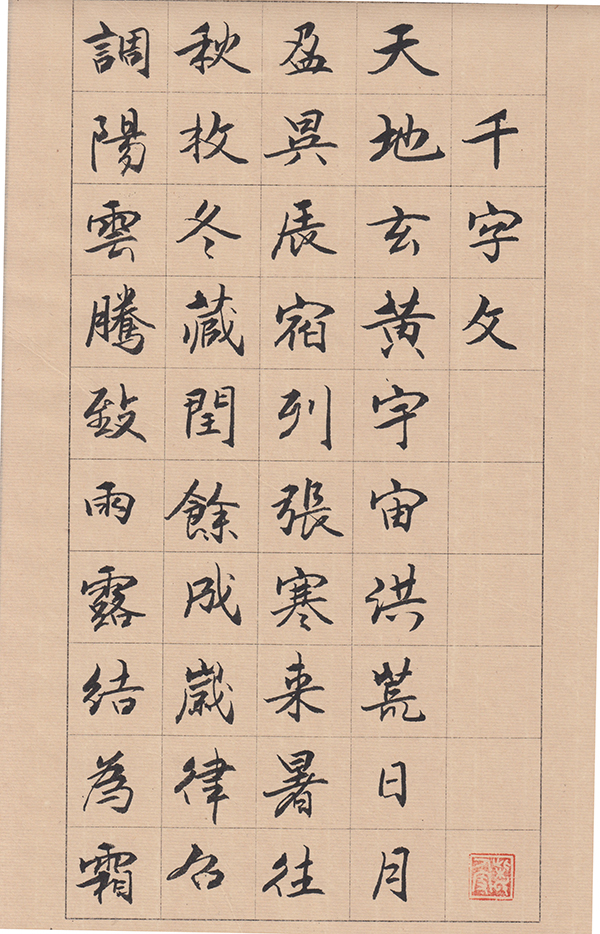 千字文
天地玄黄宇宙洪荒日月
盈昃辰宿列張寒来暑往
秋收冬藏閏餘成歲律召
調陽雲騰致雨露結為霜